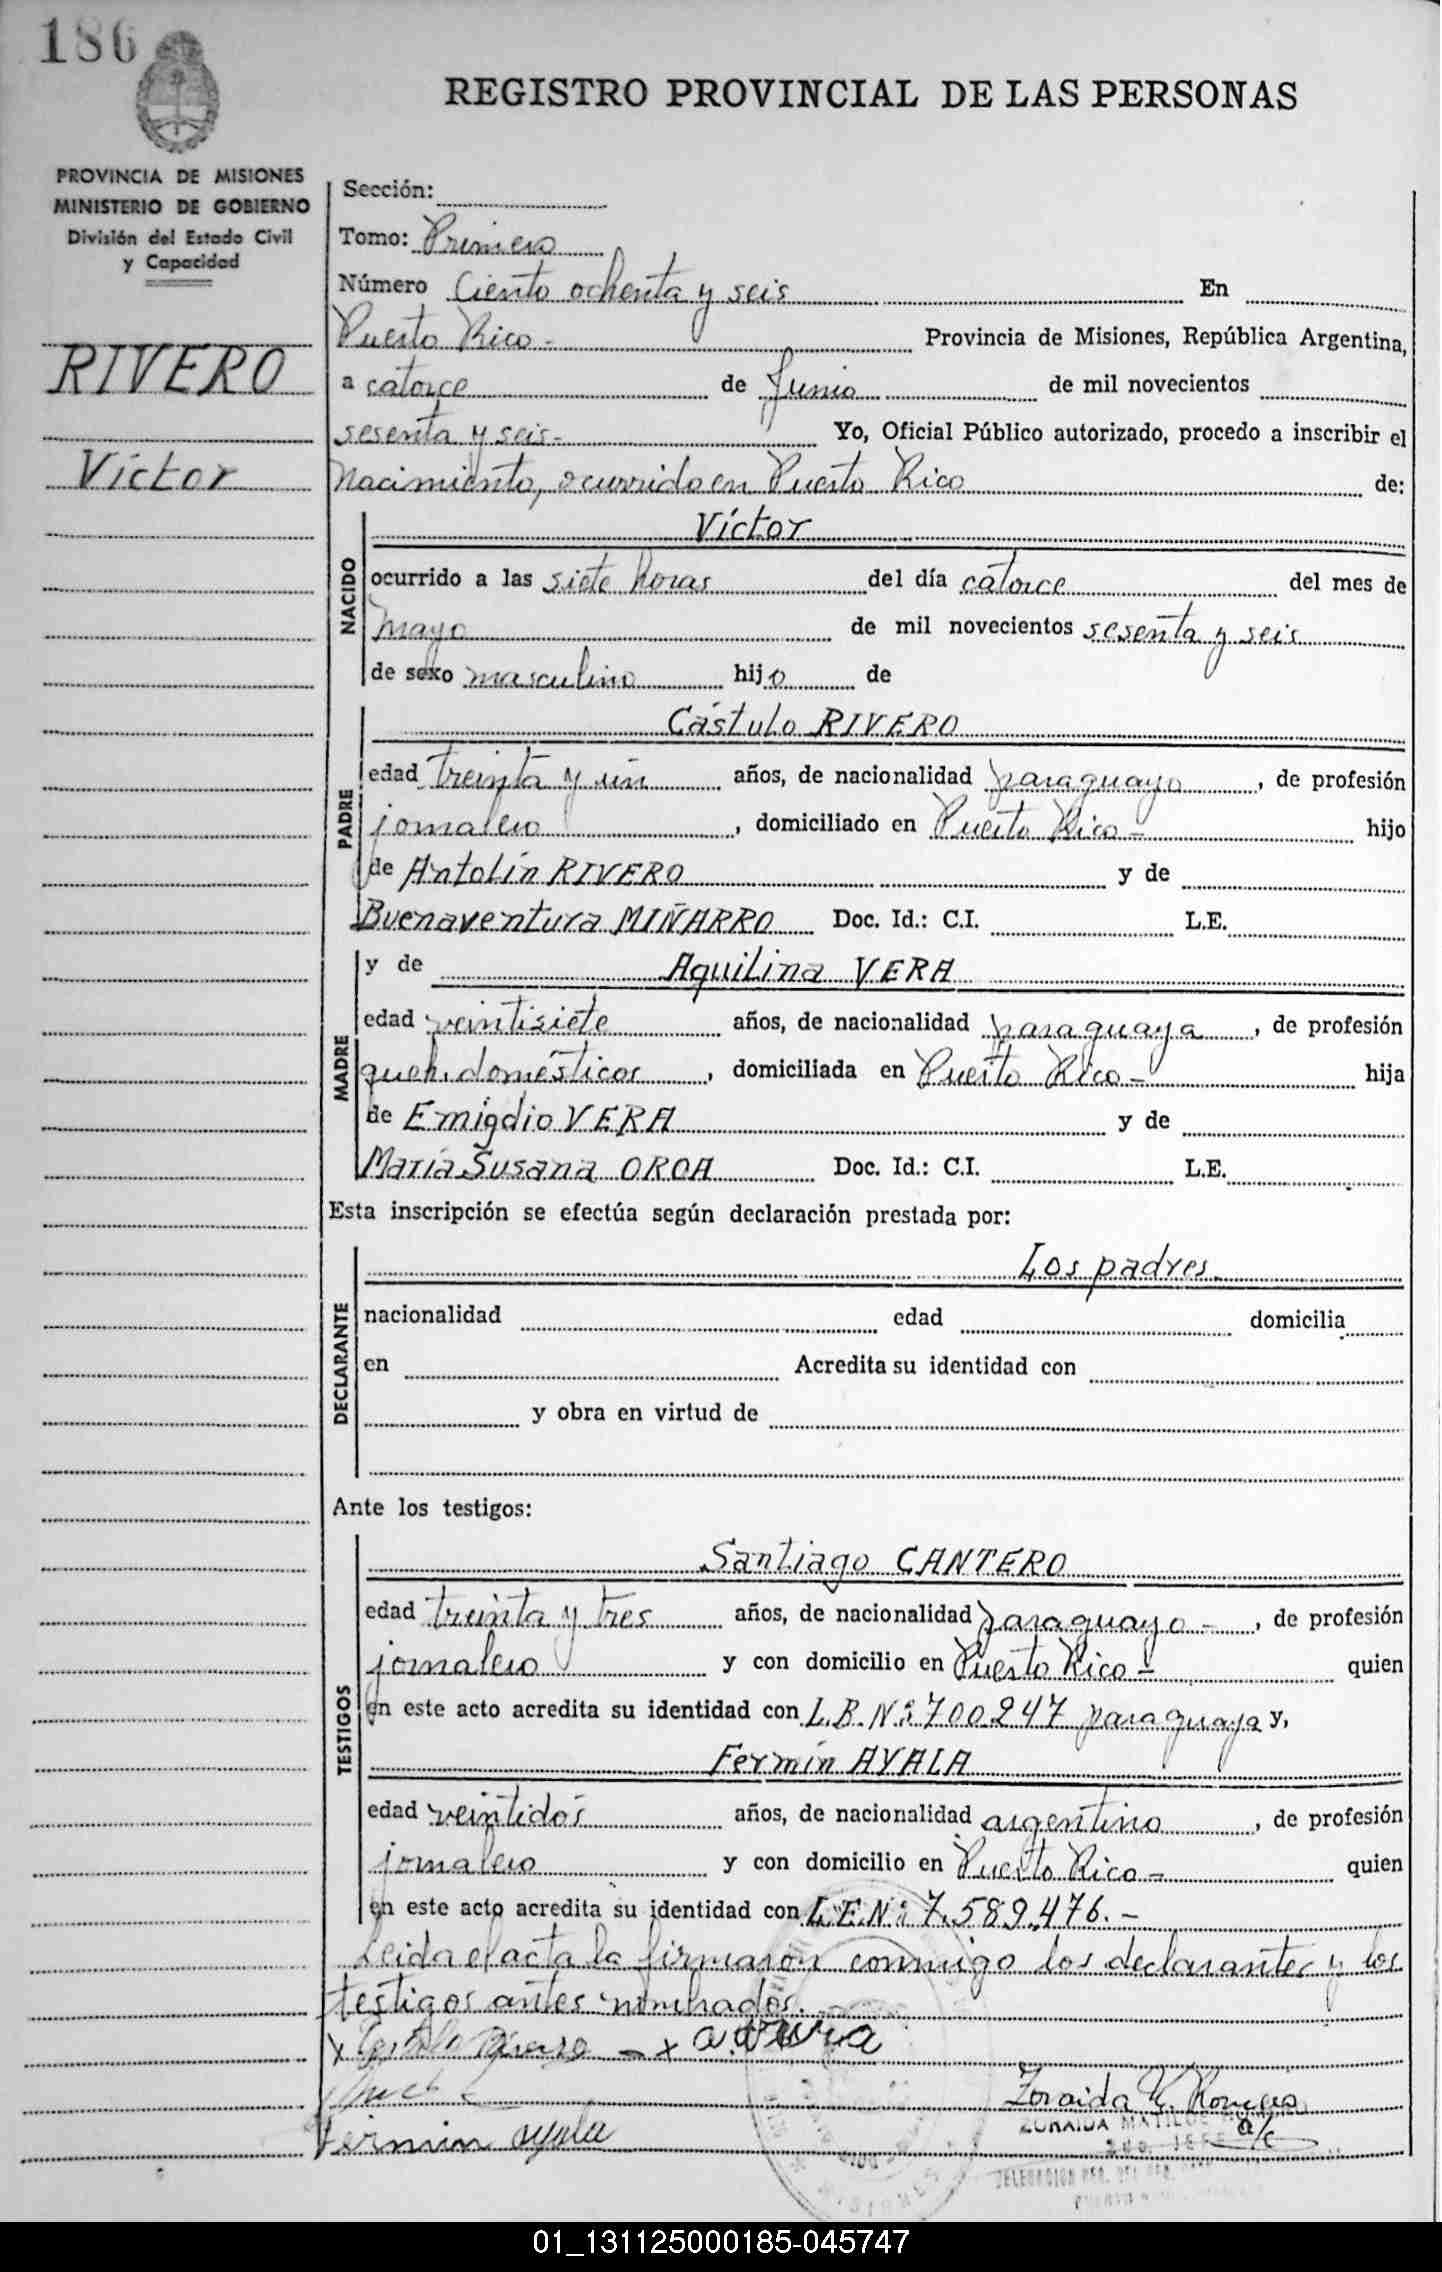 186
REGISTRO PROVINCIAL DE LAS PERSONAS
PROVINCIA DE MISIONES
MINISTERIO DE GOBIERNO
División del Estado Civil
y Capacidad
RIVERO
Víctor
Sección:
Tomo: Primero
Número Ciento ochenta y seis En
Puerto Rico - Provincia de Misiones, República Argentina,
a catorce de Junio de mil novecientos
sesenta y seis- Yo, Oficial Público autorizado, procedo a inscribir el
Nacimiento, ocurrido en Puerto Rico de:
NACIDO
Víctor
ocurrido a las siete horas del día catorce del mes de
Mayo de mil novecientos sesenta y seis
de sexo masculino hijo de
PADRE
Cástulo RIVERO
edad treinta y un años, de nacionalidad paraguayo, de profesión
jornalero, domiciliado en Puerto Rico - hijo
de Antolín RIVERO y de
Buenaventura MIÑARRO Doc. Id.: C.I. L.E.
MADRE
y de Aquilina VERA
edad veintisiete años, de nacionalidad paraguaya, de profesión
queh. domésticos, domiciliada en Puerto Rico - hija
de Emigdio VERA y de
María Susana OROA Doc. Id.: C.I. L.E.
Esta inscripción se efectúa según declaración prestada por:
DECLARANTE
Los padres
nacionalidad edad domicilia
en Acredita su identidad con
y obra en virtud de
Ante los testigos:
TESTIGOS
Santiago CANTERO
edad treinta y tres años, de nacionalidad paraguayo -, de profesión
jornalero y con domicilio en Puerto Rico - quien
en este acto acredita su identidad con L.B. Nº: 700247 paraguaya y,
Fermín AYALA
edad veintidós años, de nacionalidad argentino, de profesión
jornalero y con domicilio en Puerto Rico - quien
en este acto acredita su identidad con L.E. Nº: 7.589.476. -
Leida el acta la firmaron conmigo los declarantes y los
testigos antes nombrados. -
x - x
Zoraida
ZORAIDA
a/c
Fermin ayala
01_131125000185-045747